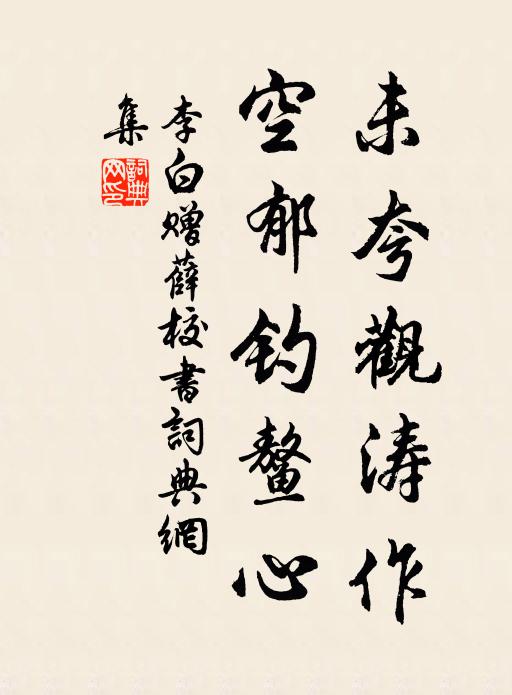 未夸觀涛作
空郁钓鳌心
李白赠薛校書詞典網
集
詞典
网印